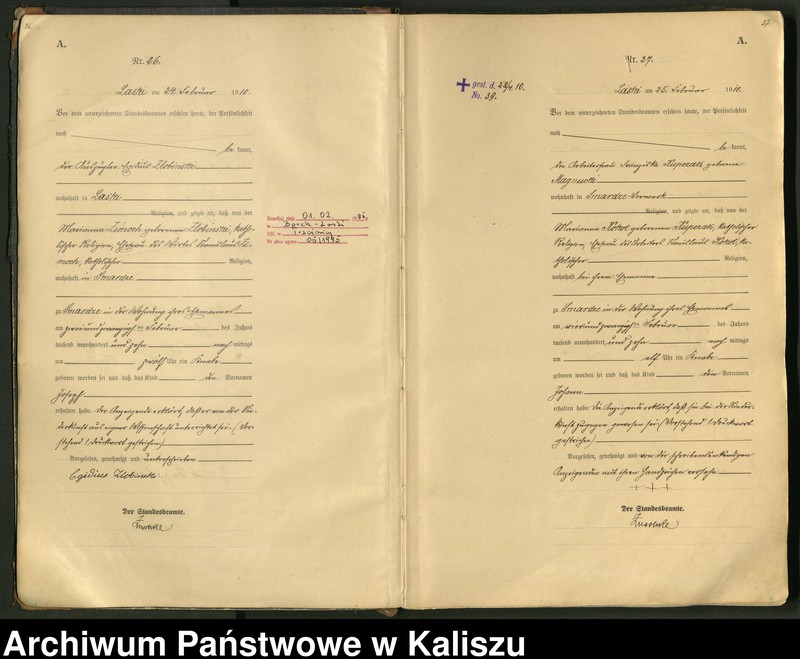 26
A.
Nr. 26.
Laski am 24. Februar 1910.
Vor dem unterzeichneten Standesbeamten erschien heute, der Persönlichkeit
nach
be kannt,
der Auszügler Egidius Zlobinski
wohnhaft in Laski
Religion, und zeigte an, daß von der
Marianna Zimoch geborenen Zlobinski, katho-
lischer Religion, Ehefrau des Wirtes Stanislaus Zi-
moch, katholischer Religion,
wohnhaft in Smardze
zu Smardze in der Wohnung ihres Ehemannes
am zweiundzwanzigsten Februar des Jahres
tausend neunhundert und zehn nach mittags
um zwölf Uhr ein Knabe
geboren worden sei und daß das Kind den Vornamen
Joseph
erhalten habe. Der Anzeigende erklärt, daß er von der Nie-
derkunft aus eigener Wissenschaft unterrichtet sei. (Vor-
stehend 1 Druckwort gestrichen)
Vorgelesen, genehmigt und unterschrieben
Egidius Zlobinski
Der Standesbeamte.
01. 02. 1945
Nr aktu zgonu 05/1945
27
A.
Nr. 27.
gest. d. 22/4. 10.
No. 39.
Laski am 25. Februar 1910.
Vor dem unterzeichneten Standesbeamten erschien heute, der Persönlichkeit
nach
be kannt,
die Arbeiterfrau Franziska Kuperak geborene
Magnucki
wohnhaft in Smardze Vorwerk
Religion, und zeigte an, daß von der
Marianna Kokot geborenen Kuperak, katholischer
Religion, Ehefrau des Arbeiters Stanislaus Kokot, ka-
tholischer Religion,
wohnhaft bei ihrem Ehemanne
zu Smardze in der Wohnung ihres Ehemannes
am vierundzwanzigsten Februar des Jahres
tausend neunhundert und zehn nach mittags
um elf Uhr ein Knabe
geboren worden sei und daß das Kind den Vornamen
Johann
erhalten habe. Die Anzeigende erklärt, daß sie bei der Nieder-
kunft zugegen gewesen sei. (Vorstehend 1 Druckwort
gestrichen)
Vorgelesen, genehmigt und von der schreibensunkundigen
Anzeigenden mit ihrem Handzeichen versehen
+++
Der Standesbeamte.
Archiwum Państwowe w Kaliszu